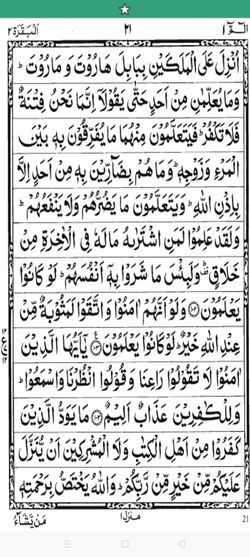 الٓمّٓ ١ ٢١ اَلْبَقَرَة ٢
اُنْزِلَ عَلَى الْمَلَكَيْنِ بِبَابِلَ هَارُوْتَ وَ مَارُوْتَ ؕ
وَمَا يُعَلِّمٰنِ مِنْ اَحَدٍ حَتّٰى يَقُوْلَاۤ اِنَّمَا نَحْنُ فِتْنَةٌ
فَلَا تَكْفُرْ ؕ فَيَتَعَلَّمُوْنَ مِنْهُمَا مَا يُفَرِّقُوْنَ بِهٖ بَيْنَ
الْمَرْءِ وَ زَوْجِهٖ ؕ وَ مَا هُمْ بِضَآرِّيْنَ بِهٖ مِنْ اَحَدٍ اِلَّا
بِاِذْنِ اللّٰهِ ؕ وَيَتَعَلَّمُوْنَ مَا يَضُرُّهُمْ وَلَا يَنْفَعُهُمْ ؕ
وَلَقَدْ عَلِمُوْا لَمَنِ اشْتَرٰىهُ مَا لَهٗ فِى الْاٰخِرَةِ مِنْ
خَلَاقٍ ؕ۫ وَلَبِئْسَ مَا شَرَوْا بِهٖۤ اَنْفُسَهُمْ ؕ لَوْ كَانُوْا
يَعْلَمُوْنَ ﴿١٠٢﴾ وَلَوْ اَنَّهُمْ اٰمَنُوْا وَاتَّقَوْا لَمَثُوْبَةٌ مِّنْ
عِنْدِ اللّٰهِ خَيْرٌ ؕ لَوْ كَانُوْا يَعْلَمُوْنَ ﴿١٠٣﴾ يٰۤاَيُّهَا الَّذِيْنَ
اٰمَنُوْا لَا تَقُوْلُوْا رَاعِنَا وَ قُوْلُوا انْظُرْنَا وَاسْمَعُوْا ؕ
وَلِلْكٰفِرِيْنَ عَذَابٌ اَلِيْمٌ ﴿١٠٤﴾ مَا يَوَدُّ الَّذِيْنَ
كَفَرُوْا مِنْ اَهْلِ الْكِتٰبِ وَلَا الْمُشْرِكِيْنَ اَنْ يُّنَزَّلَ
عَلَيْكُمْ مِّنْ خَيْرٍ مِّنْ رَّبِّكُمْ ؕ وَاللّٰهُ يَخْتَصُّ بِرَحْمَتِهٖ
منزل ١ مَنْ يَّشَآءُ
21